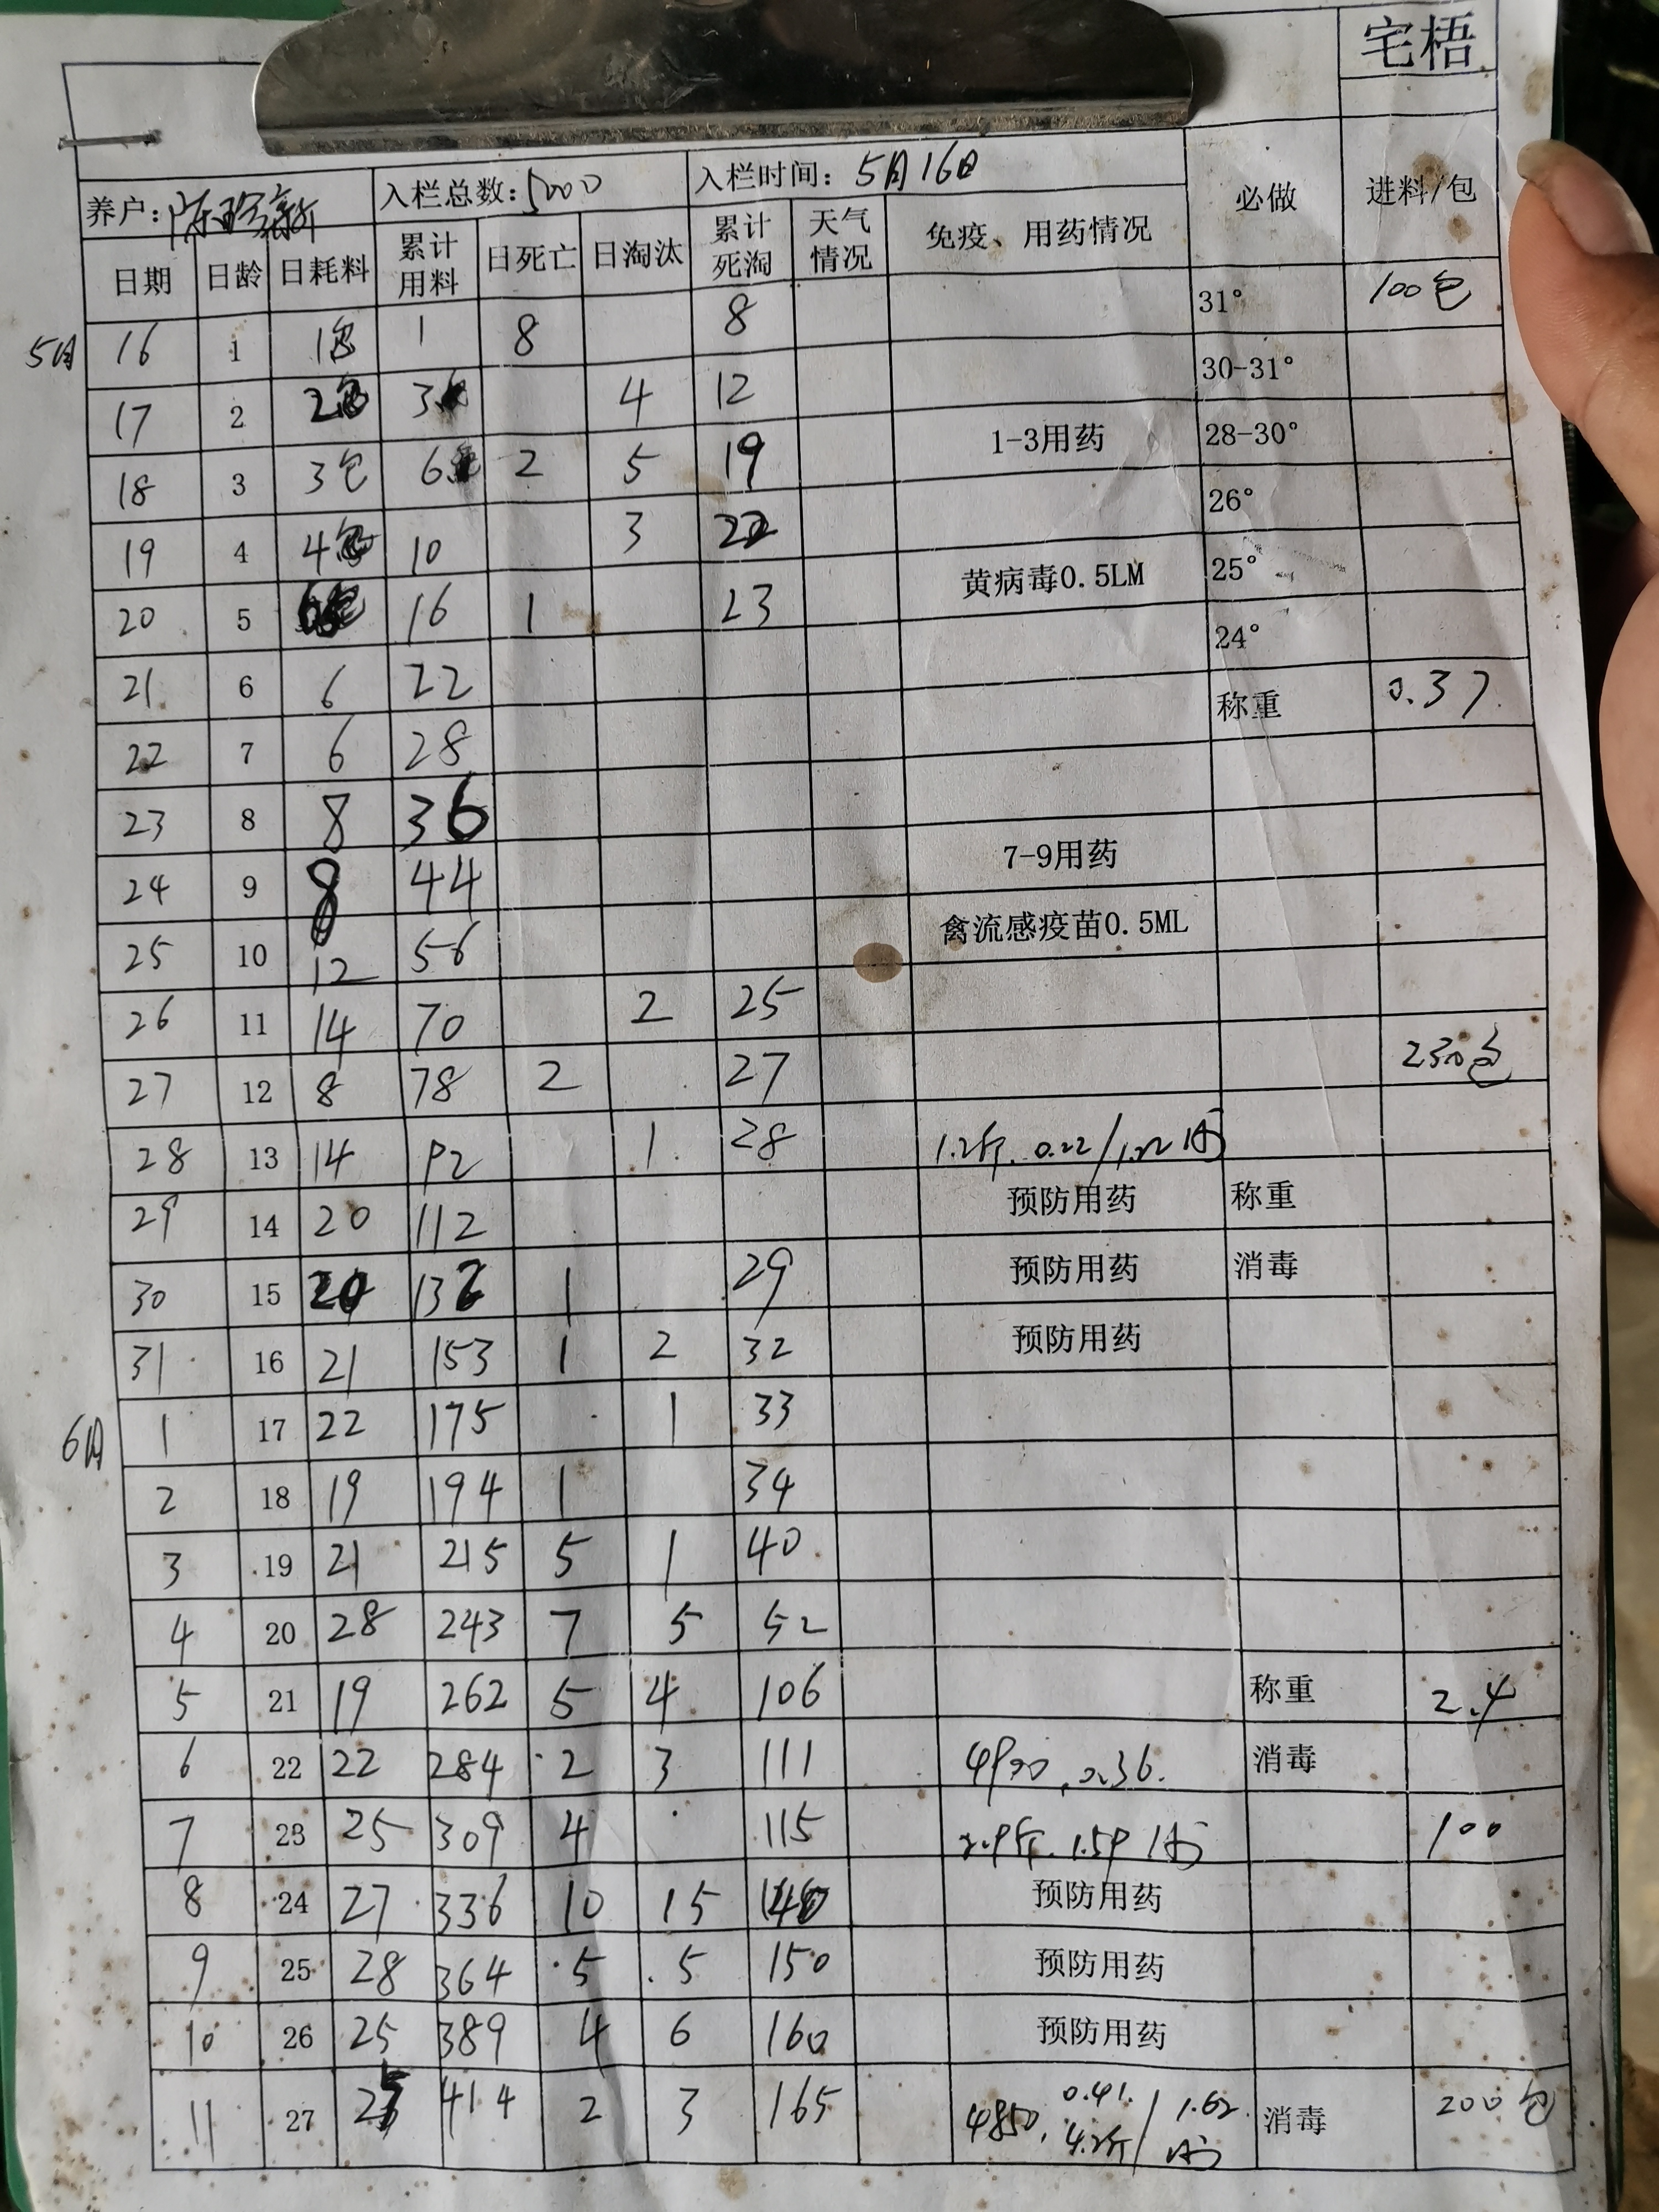 宅梧
养户: 入栏总数:5000 入栏时间: 5月16日 必做 进料/包
日期 日龄 日耗料 累计用料 日死亡 日淘汰 累计死淘 天气情况 免疫、用药情况
5月 16 1 1包 1 8 8 31° 100包
17 2 2包 3 4 12 30-31°
18 3 3包 6 2 5 19 1-3用药 28-30°
19 4 4包 10 3 22 26°
20 5 16 1 23 黄病毒0.5LM 25°
21 6 6 22 24°
22 7 6 28 称重 0.37
23 8 8 36
24 9 8 44 7-9用药
25 10 12 56 禽流感疫苗0.5ML
26 11 14 70 2 25
27 12 8 78 2 27 230包
28 13 14 92 1 28 1.2斤. 0.22/1.22
29 14 20 112 预防用药 称重
30 15 20 132 1 29 预防用药 消毒
31 16 21 153 1 2 32 预防用药
6月 1 17 22 175 1 33
2 18 19 194 1 34
3 19 21 215 5 1 40
4 20 28 243 7 5 52
5 21 19 262 5 4 106 称重 2.4
6 22 22 284 2 3 111 0.36. 消毒
7 23 25 309 4 115 2.9斤. 1.59 100
8 24 27 336 10 15 140 预防用药
9 25 28 364 5 5 150 预防用药
10 26 25 389 4 6 160 预防用药
11 27 25 414 2 3 165 4850. 0.41. 4.2斤/1.62 消毒 200包